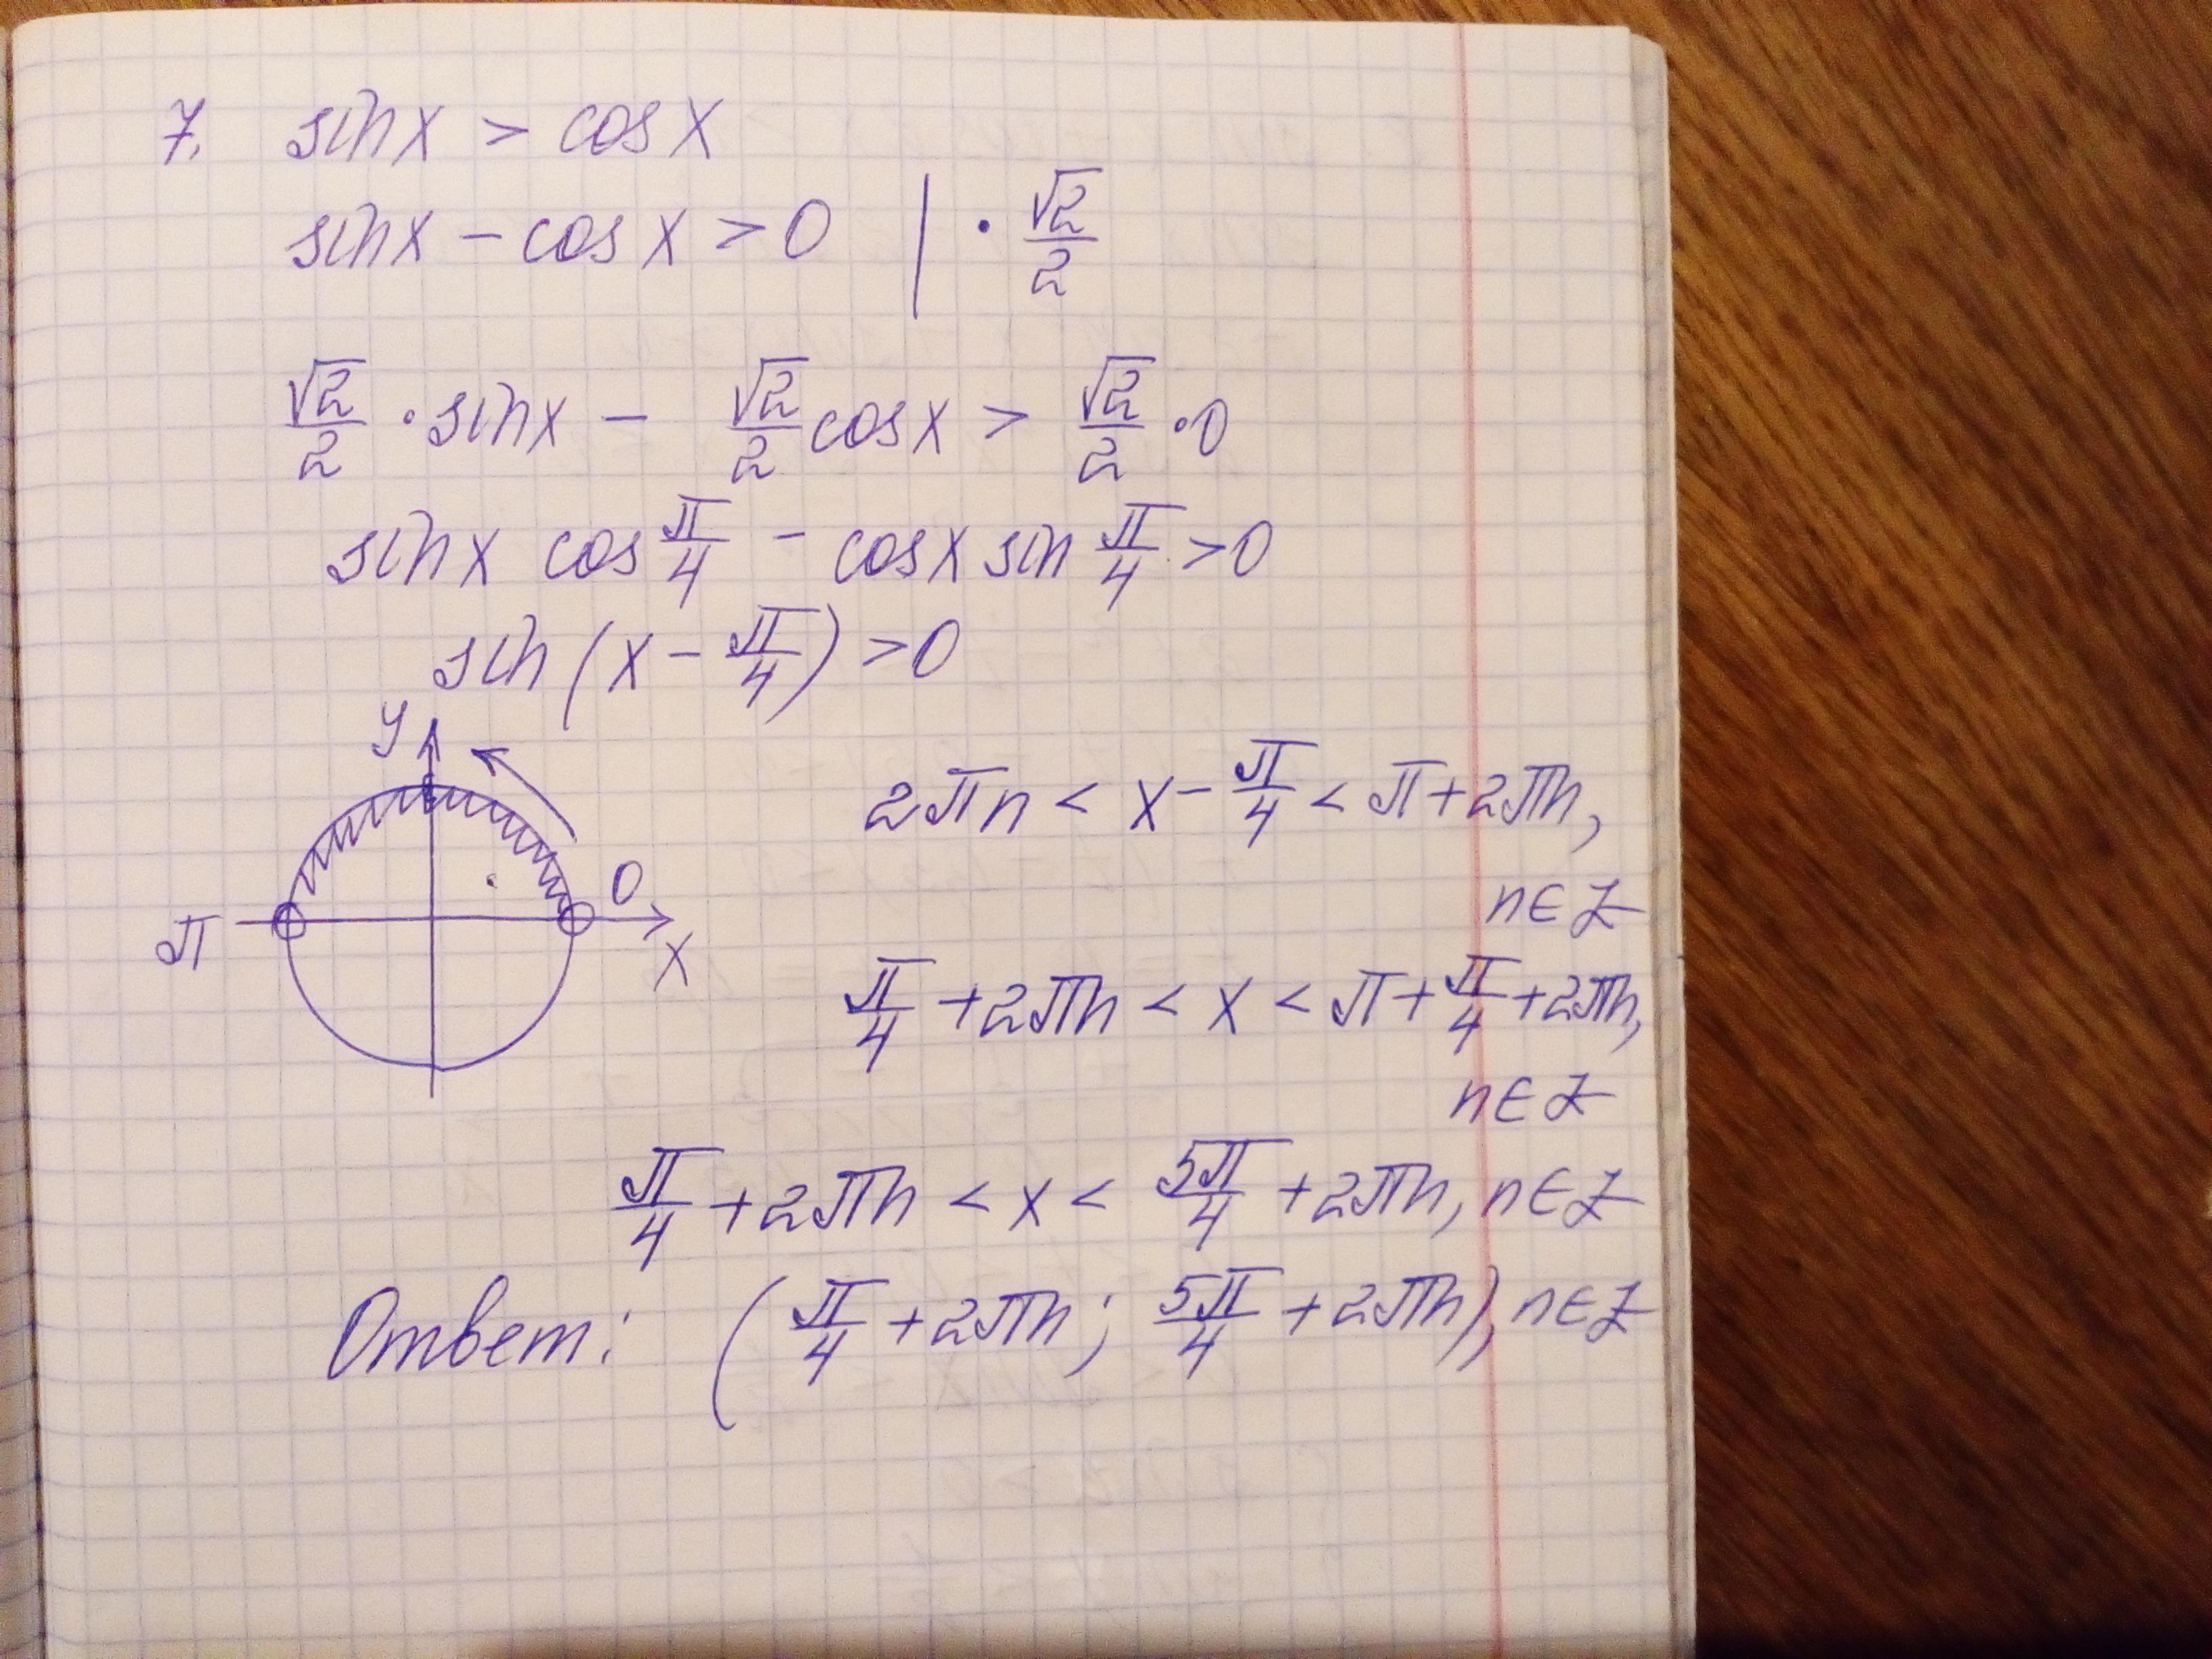 7. sin x > cos x
sin x − cos x > 0 | · √2/2
√2/2 · sin x − √2/2 cos x > √2/2 · 0
sin x cos π/4 − cos x sin π/4 > 0
sin (x − π/4) > 0
y
2πn < x − π/4 < π + 2πn,
0
n ∈ Z
π
x
π/4 + 2πn < x < π + π/4 + 2πn,
n ∈ Z
π/4 + 2πn < x < 5π/4 + 2πn, n ∈ Z
Ответ: (π/4 + 2πn; 5π/4 + 2πn), n ∈ Z